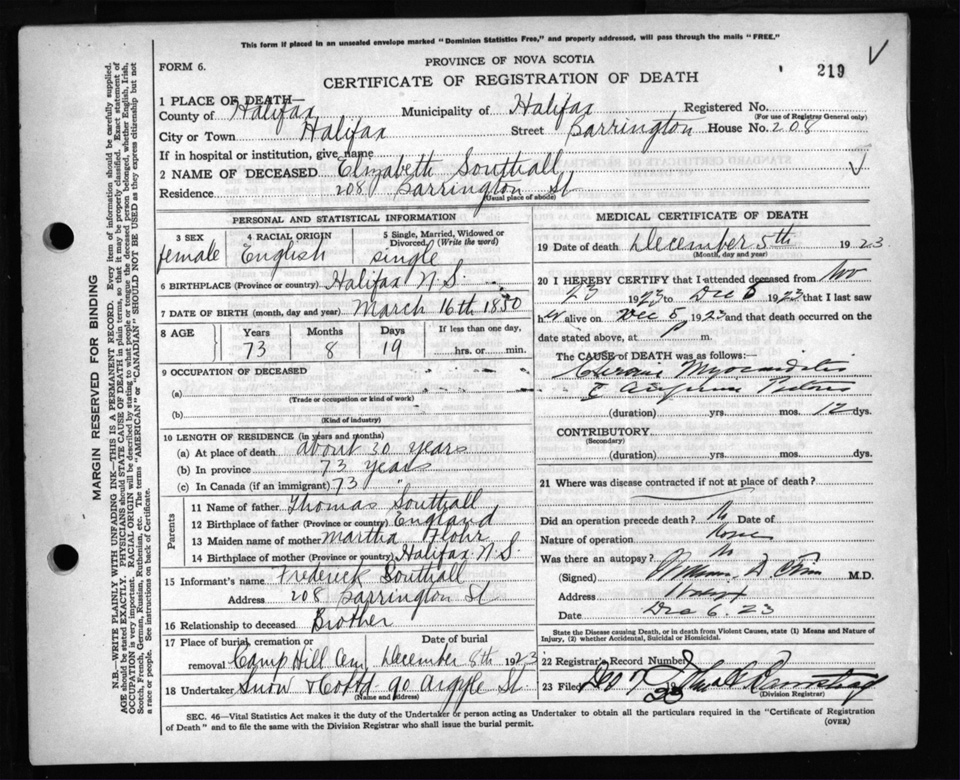 This form if placed in an unsealed envelope marked "Dominion Statistics Free," and properly addressed, will pass through the mails "FREE."
FORM 6.
PROVINCE OF NOVA SCOTIA
CERTIFICATE OF REGISTRATION OF DEATH
219
1 PLACE OF DEATH
County of Halifax Municipality of Halifax Registered No.
(For use of Registrar General only)
City or Town Halifax Street Barrington House No. 208
If in hospital or institution, give name
2 NAME OF DECEASED Elizabeth Southall
Residence 208 Barrington St
(Usual place of abode)
PERSONAL AND STATISTICAL INFORMATION
3 SEX 4 RACIAL ORIGIN 5 Single, Married, Widowed or Divorced, (Write the word)
female English single
6 BIRTHPLACE (Province or country) Halifax N.S.
7 DATE OF BIRTH (month, day and year) March 16th 1850
8 AGE Years Months Days If less than one day,
73 8 19 hrs. or min.
9 OCCUPATION OF DECEASED
(a)
(Trade or occupation or kind of work)
(b)
(Kind of industry)
10 LENGTH OF RESIDENCE (in years and months)
(a) At place of death about 30 years
(b) In province 73 years
(c) In Canada (if an immigrant) 73 "
Parents
11 Name of father Thomas Southall
12 Birthplace of father (Province or country) England
13 Maiden name of mother Martha Flohr
14 Birthplace of mother (Province or country) Halifax N.S.
15 Informant's name Frederick Southall
Address 208 Barrington St
16 Relationship to deceased Brother
17 Place of burial, cremation or removal Date of burial
Camp Hill Cem. December 8th 1923
18 Undertaker Snow & 90 Argyle St.
(Name and address)
MEDICAL CERTIFICATE OF DEATH
19 Date of death December 5th 1923
(Month, day and year)
20 I HEREBY CERTIFY that I attended deceased from Nov
23 1923 to Dec 5 1923 that I last saw
her alive on Dec 5 1923 and that death occurred on the
date stated above, at m.
The CAUSE OF DEATH was as follows:—
Chronic Myocarditis
(duration) yrs. mos. 12 dys.
CONTRIBUTORY
(Secondary)
(duration) yrs. mos. dys.
21 Where was disease contracted if not at place of death?
Did an operation precede death? No Date of
Nature of operation None
Was there an autopsy? No
(Signed) M.D.
Address Halifax
Date Dec 6. 23
State the Disease causing Death, or in death from Violent Causes, state (1) Means and Nature of Injury, (2) whether Accidental, Suicidal or Homicidal.
22 Registrar's Record Number
23 Filed Dec 7 23
(Division Registrar)
SEC. 46—Vital Statistics Act makes it the duty of the Undertaker or person acting as Undertaker to obtain all the particulars required in the "Certificate of Registration
of Death" and to file the same with the Division Registrar who shall issue the burial permit. (OVER)
MARGIN RESERVED FOR BINDING
N.B.—WRITE PLAINLY WITH UNFADING INK—THIS IS A PERMANENT RECORD. Every item of information should be carefully supplied.
AGE should be stated EXACTLY. PHYSICIANS should STATE CAUSE OF DEATH in plain terms, so that it may be properly classified. Exact statement of
OCCUPATION is very important. RACIAL ORIGIN will be described by stating to what people or tongue the deceased person belonged, whether English, Irish,
Scotch, French, German, Russian, Ruthenian, etc. The terms "AMERICAN" or "CANADIAN" SHOULD NOT BE USED as they express citizenship but not
a race or people. See instructions on back of Certificate.